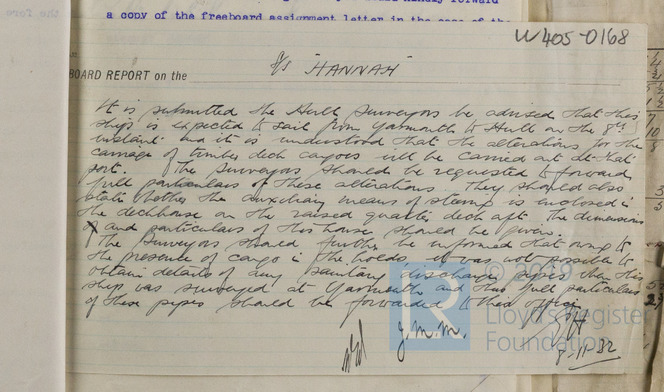 a copy of the freeboard assignment letter in the case of the
W405-0168
BOARD REPORT on the S/S "HANNAH"
It is submitted the Hull Surveyors be advised that this
ship is expected to sail from Yarmouth to Hull on the 8th
instant and it is understood that the alterations for the
carriage of timber deck cargoes will be carried out at that
port. The Surveyors should be requested to forward
full particulars of these alterations. They should also
state whether the auxiliary means of steering is enclosed in
the deckhouse on the raised quarter deck aft. The dimensions
of and particulars of this house should be given.
The Surveyors should further be informed that owing to
the presence of cargo in the holds it was not possible to
obtain details of any sanitary discharge pipes when this
ship was surveyed at Yarmouth and that full particulars
of these pipes should be forwarded to this office.
J.M.M.
8-11-32
© 2019
Lloyd's Register
Foundation